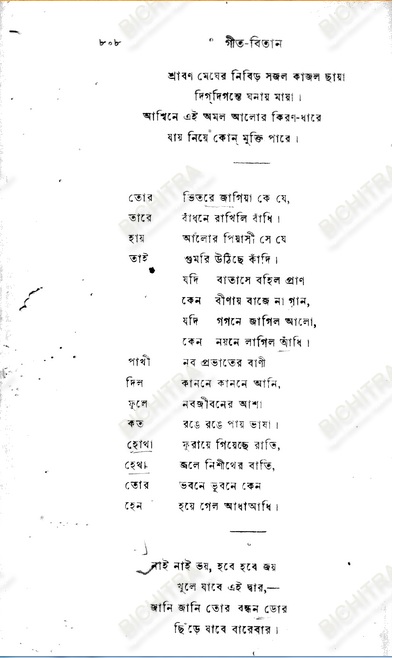 ৮০৮ গীত-বিতান
শ্রাবণ মেঘের নিবিড় সজল কাজল ছায়া
দিগ্‌দিগন্তে ঘনায় মায়া।
আশ্বিনে এই অমল আলোর কিরণ-ধারে
যায় নিয়ে কোন্ মুক্তি পারে।
তোর ভিতরে জাগিয়া কে যে,
তারে বাঁধনে রাখিলি বাঁধি।
হায় আলোর পিয়াসী সে যে
তাই গুমরি উঠিছে কাঁদি।
যদি বাতাসে বহিল প্রাণ
কেন বীণায় বাজে না গান,
যদি গগনে জাগিল আলো,
কেন নয়নে লাগিল আঁধি।
পাখী নব প্রভাতের বাণী
দিল কাননে কাননে আনি,
ফুলে নবজীবনের আশা
কত রঙে রঙে পায় ভাষা।
হোথা ফুরায়ে গিয়েছে রাতি,
হেথা জ্বলে নিশীথের বাতি,
তোর ভবনে ভুবনে কেন
হেন হয়ে গেল আধাআধি।
নাই নাই ভয়, হবে হবে জয়
খুলে যাবে এই দ্বার,—
জানি জানি তোর বন্ধন ডোর
ছিঁড়ে যাবে বারেবার।
BICHITRA